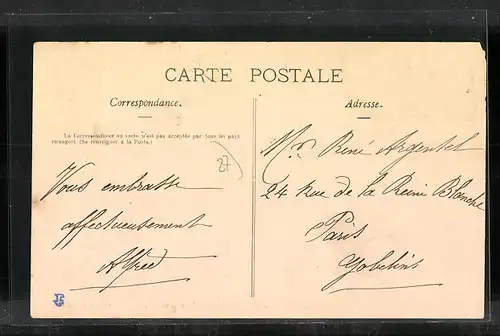 CARTE POSTALE
Correspondance.
Adresse.
La Correspondance au recto n'est pas acceptée par tous les pays
étrangers (Se renseigner à la Poste.)
27
Vous embrasse
affectueusement
Alfred
Mr René Argentel
24 Rue de la Reine Blanche
Paris
Gobelins